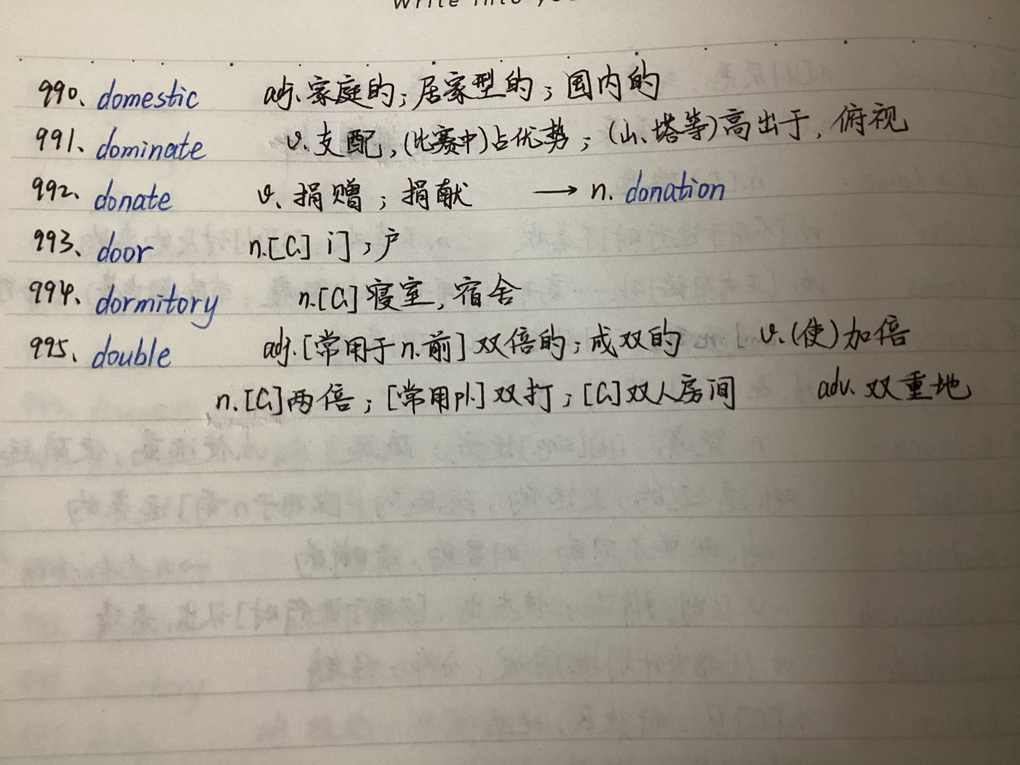 Write into yo
990. domestic adj.家庭的；居家型的；国内的
991、dominate v.支配,(比赛中)占优势；(山、塔等)高出于，俯视
992、donate v、捐赠；捐献 → n. donation
993、door n.[C] 门；户
994、dormitory n.[C]寝室，宿舍
995、double adj.[常用于n.前]双倍的；成双的 v.(使)加倍
n.[C]两倍；[常用pl.]双打；[C]双人房间 adv.双重地